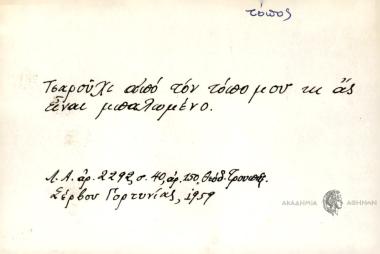 τόπος
Τσαρούχι ἀπό τόν τόπο μου κι ἄς
εἶναι μπαλωμένο.
Λ.Α. ἀρ. 2292, σ. 40, ἀρ. 150, Θεόδ.
Σέρβου Γορτυνίας, 1959
ΑΚΑΔΗΜΙΑ ΑΘΗΝΩΝ